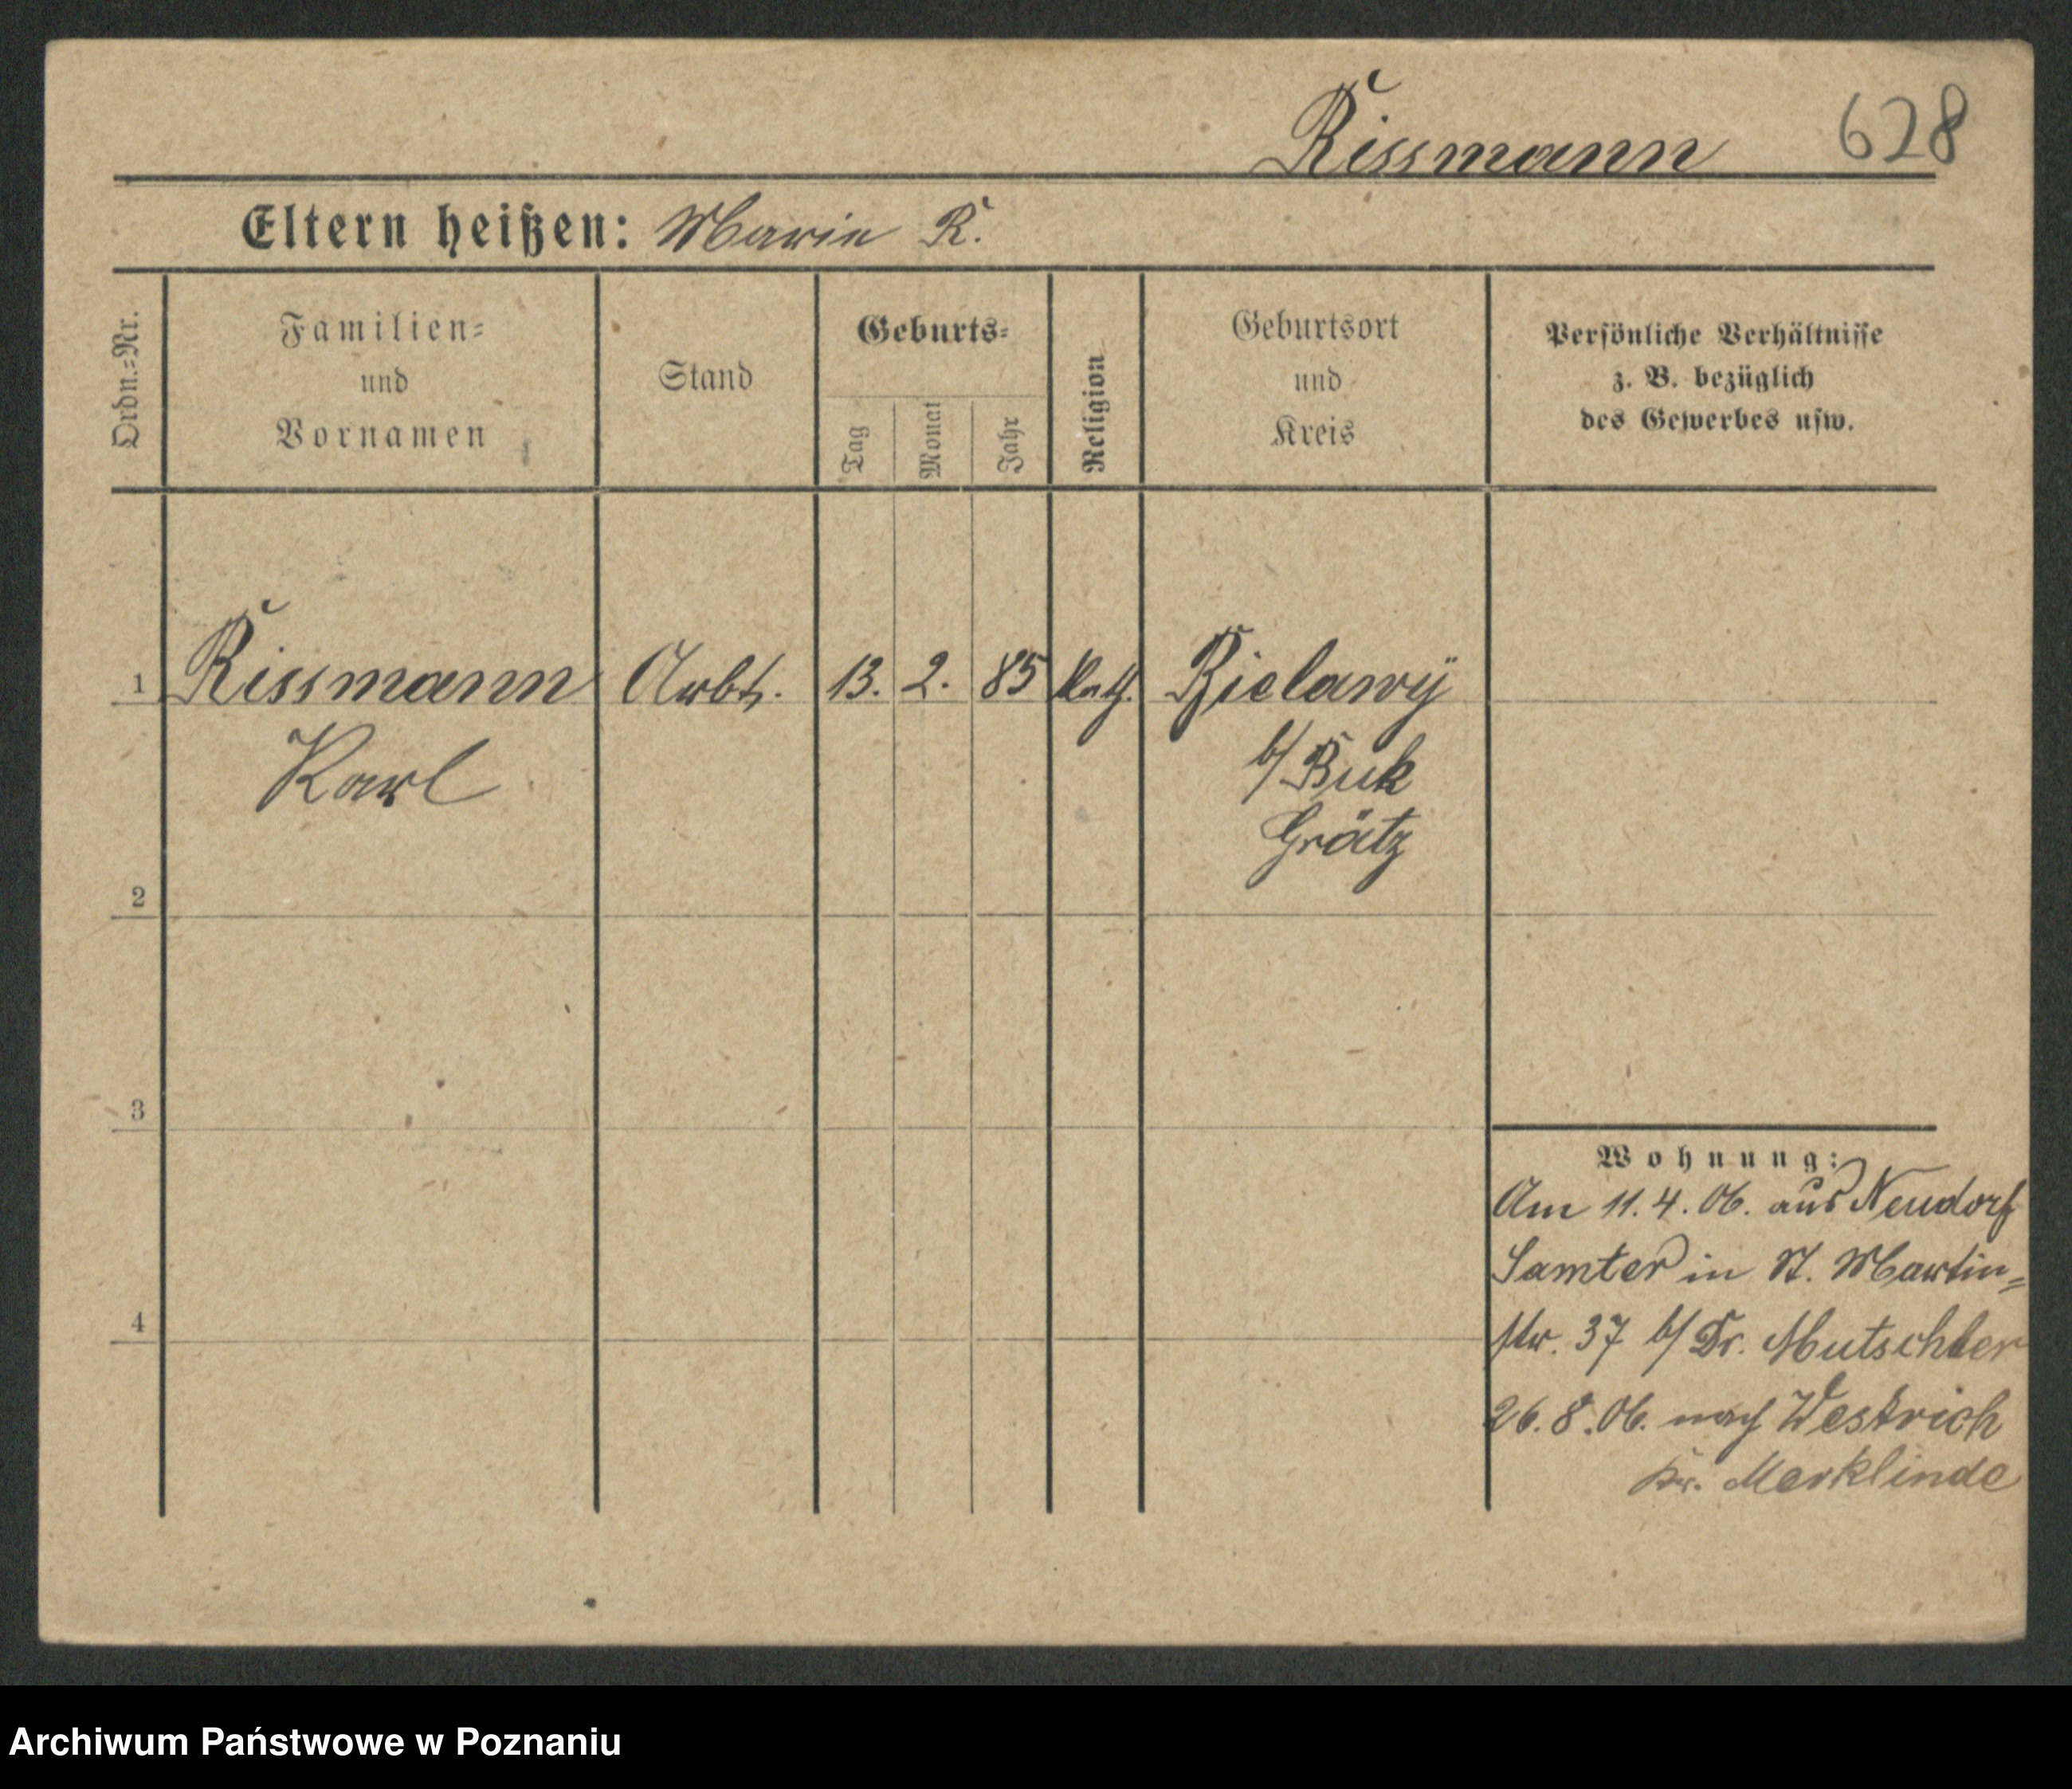 Rissmann 628
Eltern heißen: Marie R.
Ordn.=Nr.
Familien=
und
Vornamen
Stand
Geburts=
Tag
Monat
Jahr
Religion
Geburtsort
und
Kreis
Persönliche Verhältnisse
z. B. bezüglich
des Gewerbes usw.
1 Rissmann Arbt. 13. 2. 85 Kath. Bielawÿ
Karl b/ Buk
Grätz
2
3
4
Wohnung:
Am 11. 4. 06. aus Neudorf
Samter in St. Martin=
str. 37 b/ Dr. Mutschler
26. 8. 06. nach Westrich
Kr. Merklinde
Archiwum Państwowe w Poznaniu